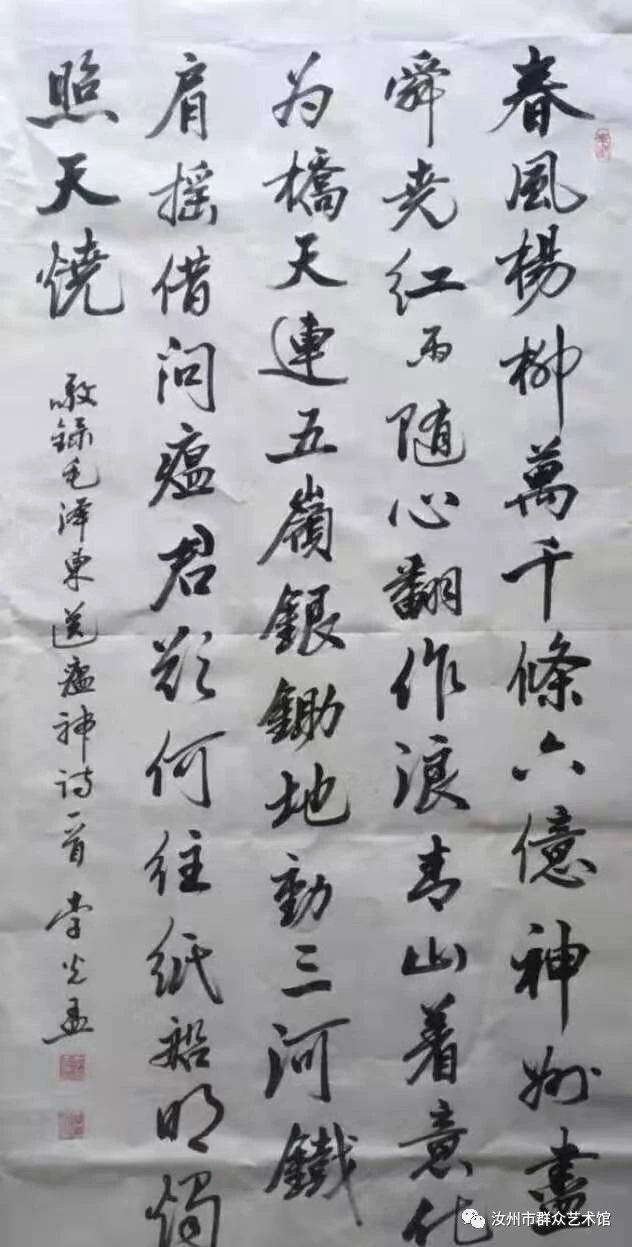 春風楊柳萬千條六億神州盡
舜尧红雨随心翻作浪青山着意化
为橋天連五嶺銀鋤地動三河鐵
肩摇借问瘟君欲何往紙船明燭
照天燒
敬録毛泽東送瘟神诗一首
汝州市群众艺术馆